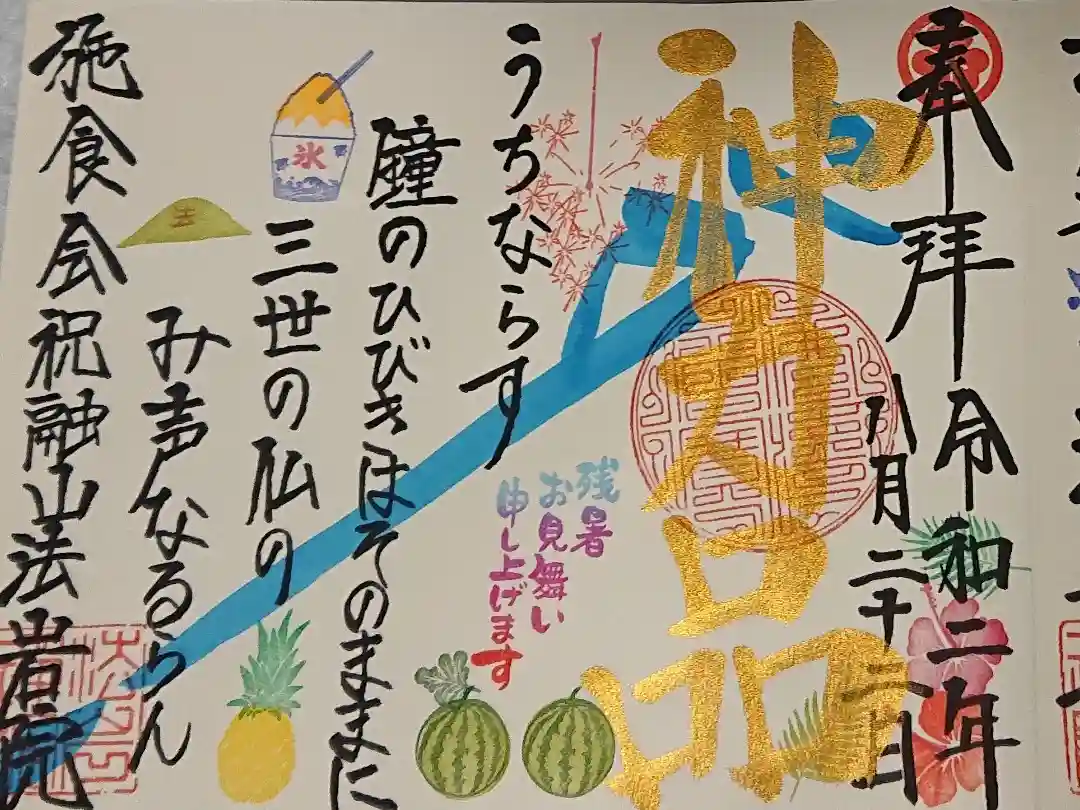 奉拝
令和二年
八月二十三日
神力品
うちならす
鐘のひびきはそのままに
三世の仏の
み声なるらん
残暑
お見舞い
申し上げます
氷
施食会祝融山法岩院